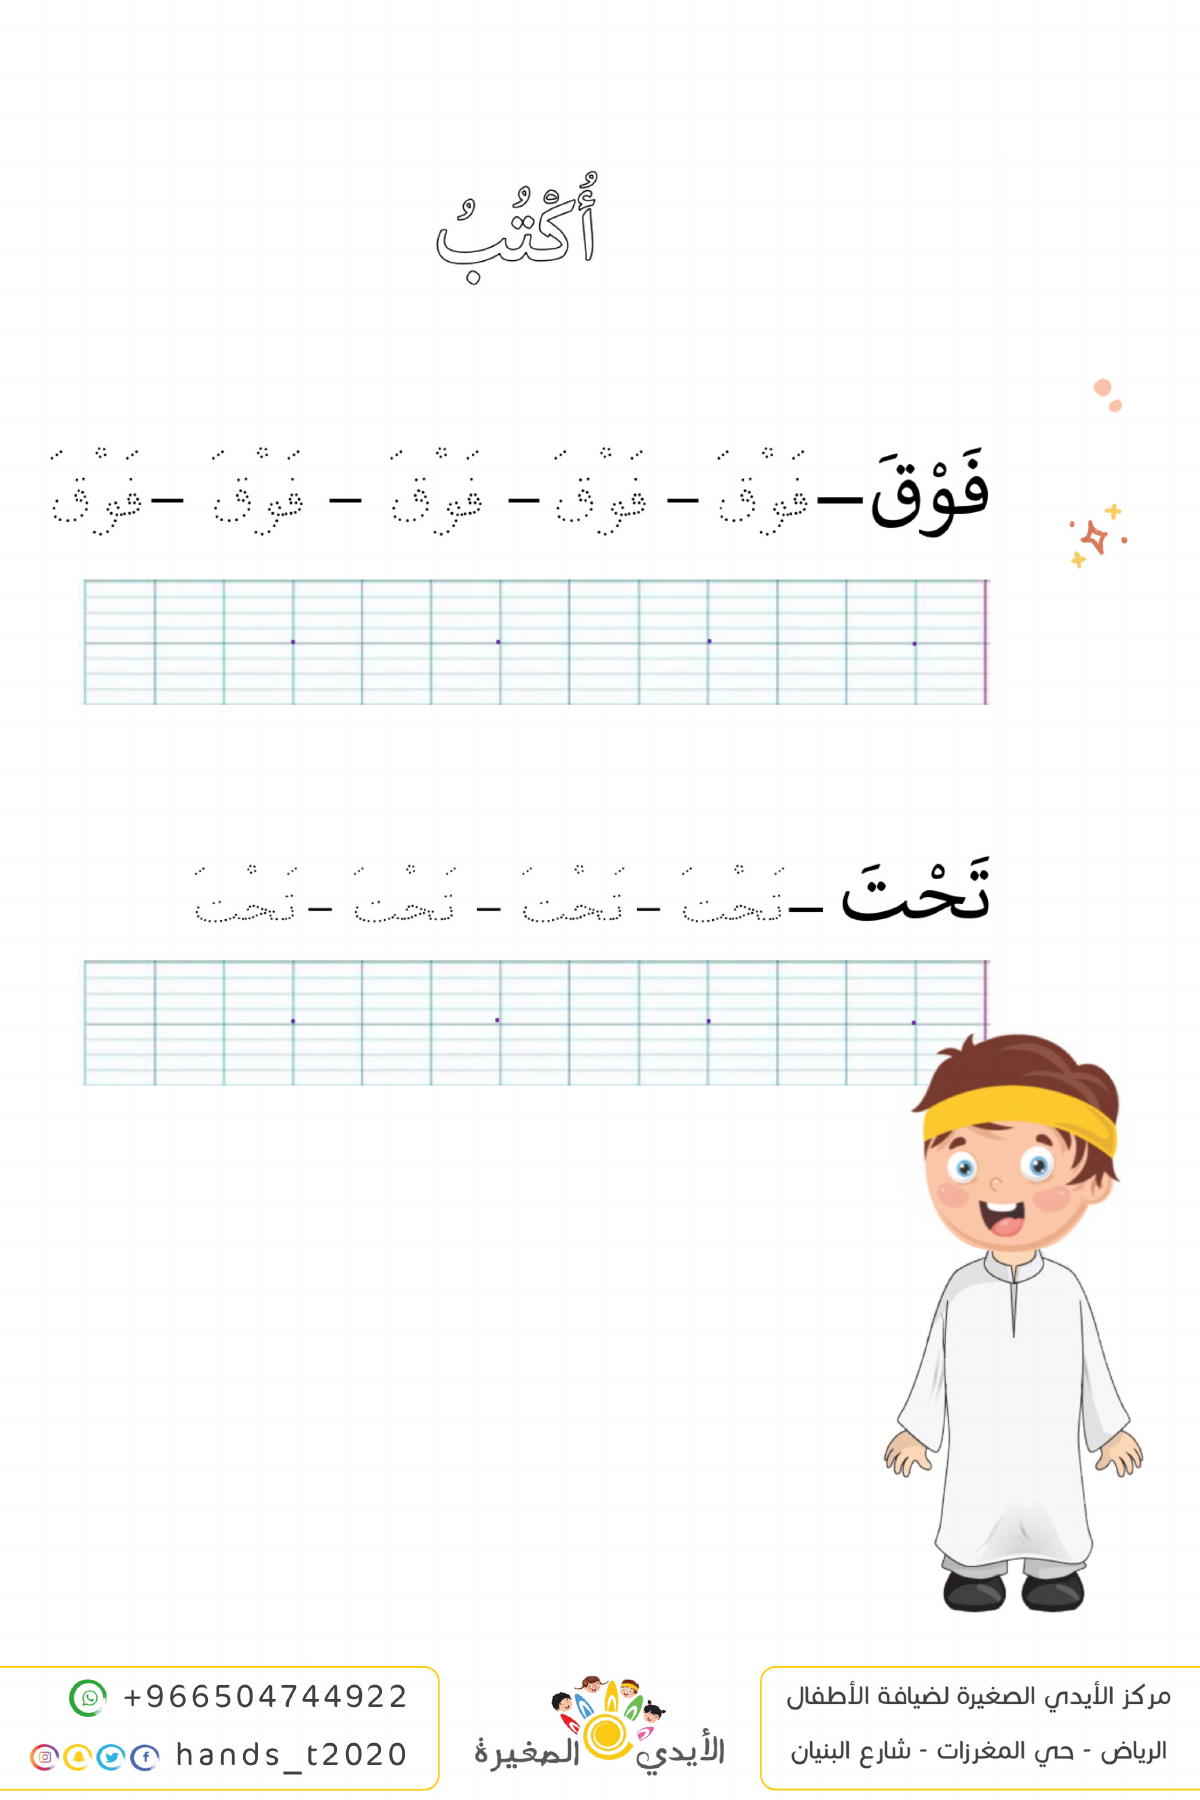 أُكْتُبُ
فَوْقَ – فَوْقَ – فَوْقَ – فَوْقَ – فَوْقَ – فَوْقَ
تَحْتَ – تَحْتَ – تَحْتَ – تَحْتَ – تَحْتَ
مركز الأيدي الصغيرة لضيافة الأطفال
الرياض - حي المغرزات - شارع البنيان
الأيدي الصغيرة
+966504744922
hands_t2020